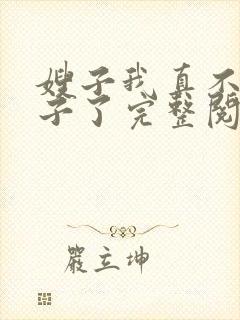 嫂子我真不
子了完整阅
严立坤